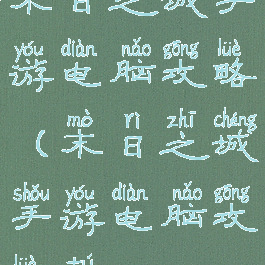 末日之城手
yóu diàn nǎo gōng lüè
游电脑攻略
mò rì zhī chéng
(末日之城
shǒu yóu diàn nǎo gōng
手游电脑攻